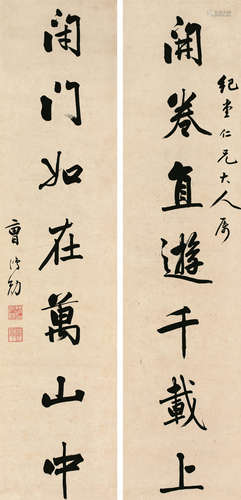 紀堂仁兄大人屬
開卷直遊千載上
閉門如在萬山中
曹鴻勛